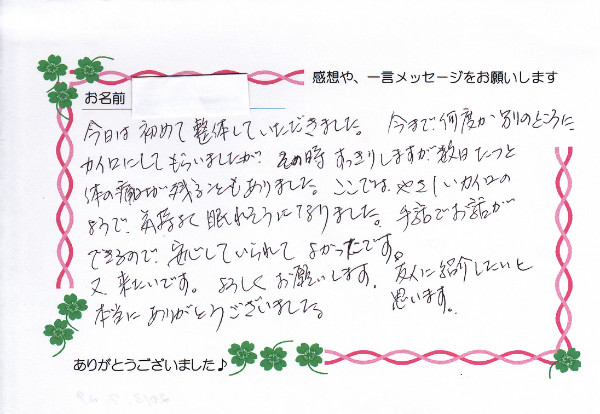 感想や、一言メッセージをお願いします
お名前
今日は初めて整体していただきました。 今まで何度か別のところに
カイロにしてもらいましたが、その時すっきりしますが数日たつと
体の痛みが残ることもありました。ここでは、やさしいカイロの
ようで、気持よく眠れそうになりました。手話でお話が
できるので、安心していられてよかったです。
又来たいです。よろしくお願いします。友人に紹介したいと
思います。
本当にありがとうございました。
ありがとうございました♪